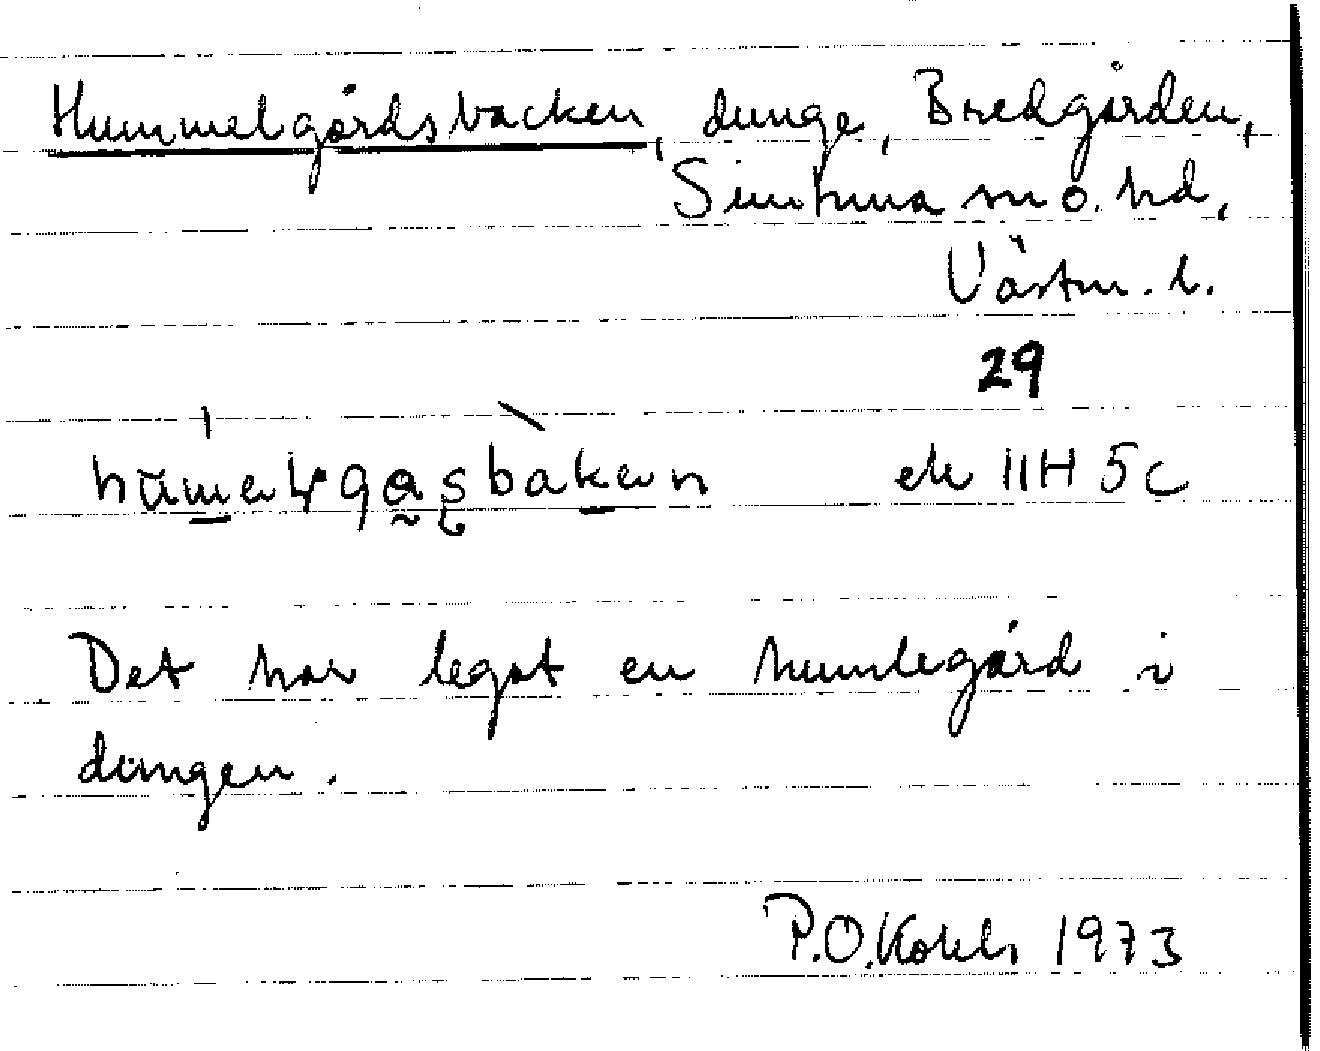 Hummelgårdsbacken, dunge, Bredgården,
Simtuna sn o. hd,
Västm. l.
29
ek 11H 5c
Det har legat en humlegård i
dungen.
P.O. 1973